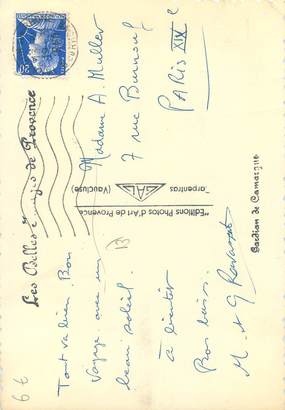 Les Belles Images de Provence
Gardian de Camargue
Tout va bien. Bon
voyage avec un
beau soleil.
à bientôt
Bons baisers.
"Editions Photos d'Art de Provence"
Carpentras (Vaucluse)
Madame A. Muller
7 rue Burnouf
PARIS XIXe
20F
13
6 €